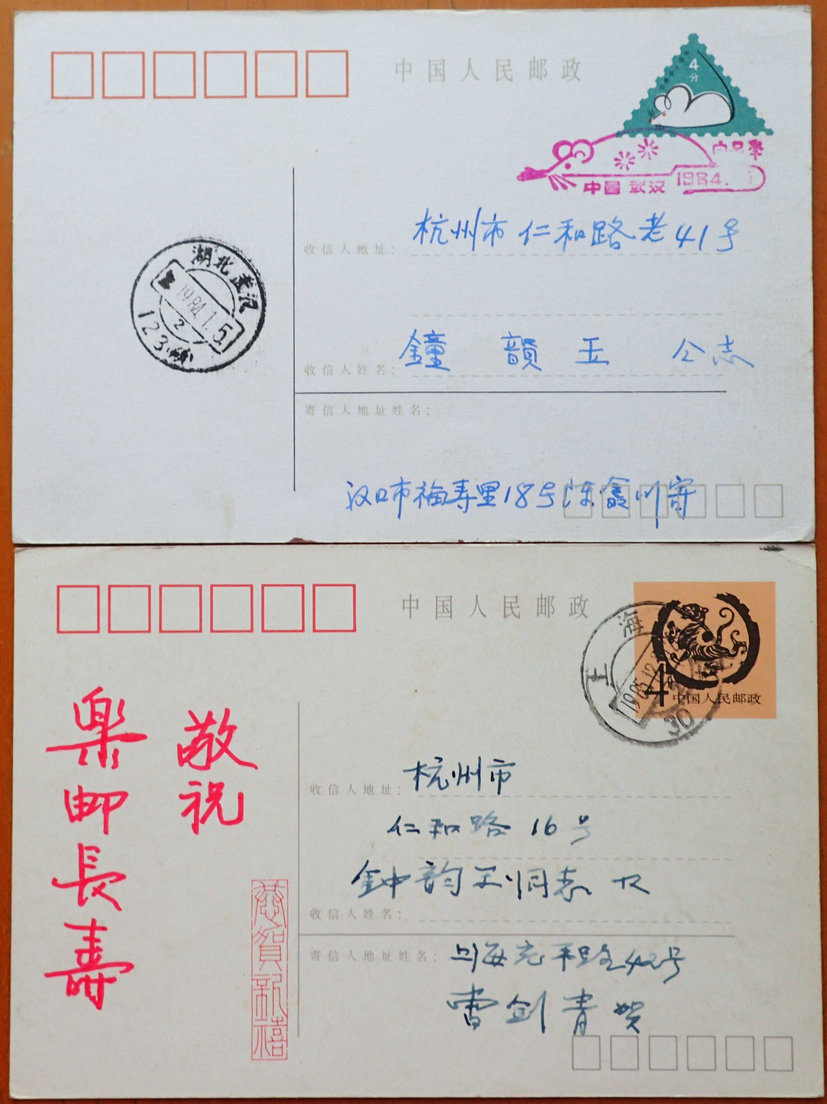 中国人民邮政
4
分
中国 武汉 1984.
湖北武汉
1984.1.5
2
123
收信人地址:
杭州市仁和路老41号
收信人姓名:
鐘韻玉 仝志
寄信人地址姓名:
汉口市福寿里18号陈鑫川寄
中国人民邮政
上海
4
中国人民邮政
30
敬祝
樂邮長壽
恭賀新禧
收信人地址:
杭州市
仁和路16号
钟韵玉同志收
收信人姓名:
寄信人地址姓名:
上海 路42号
曹剑青贺